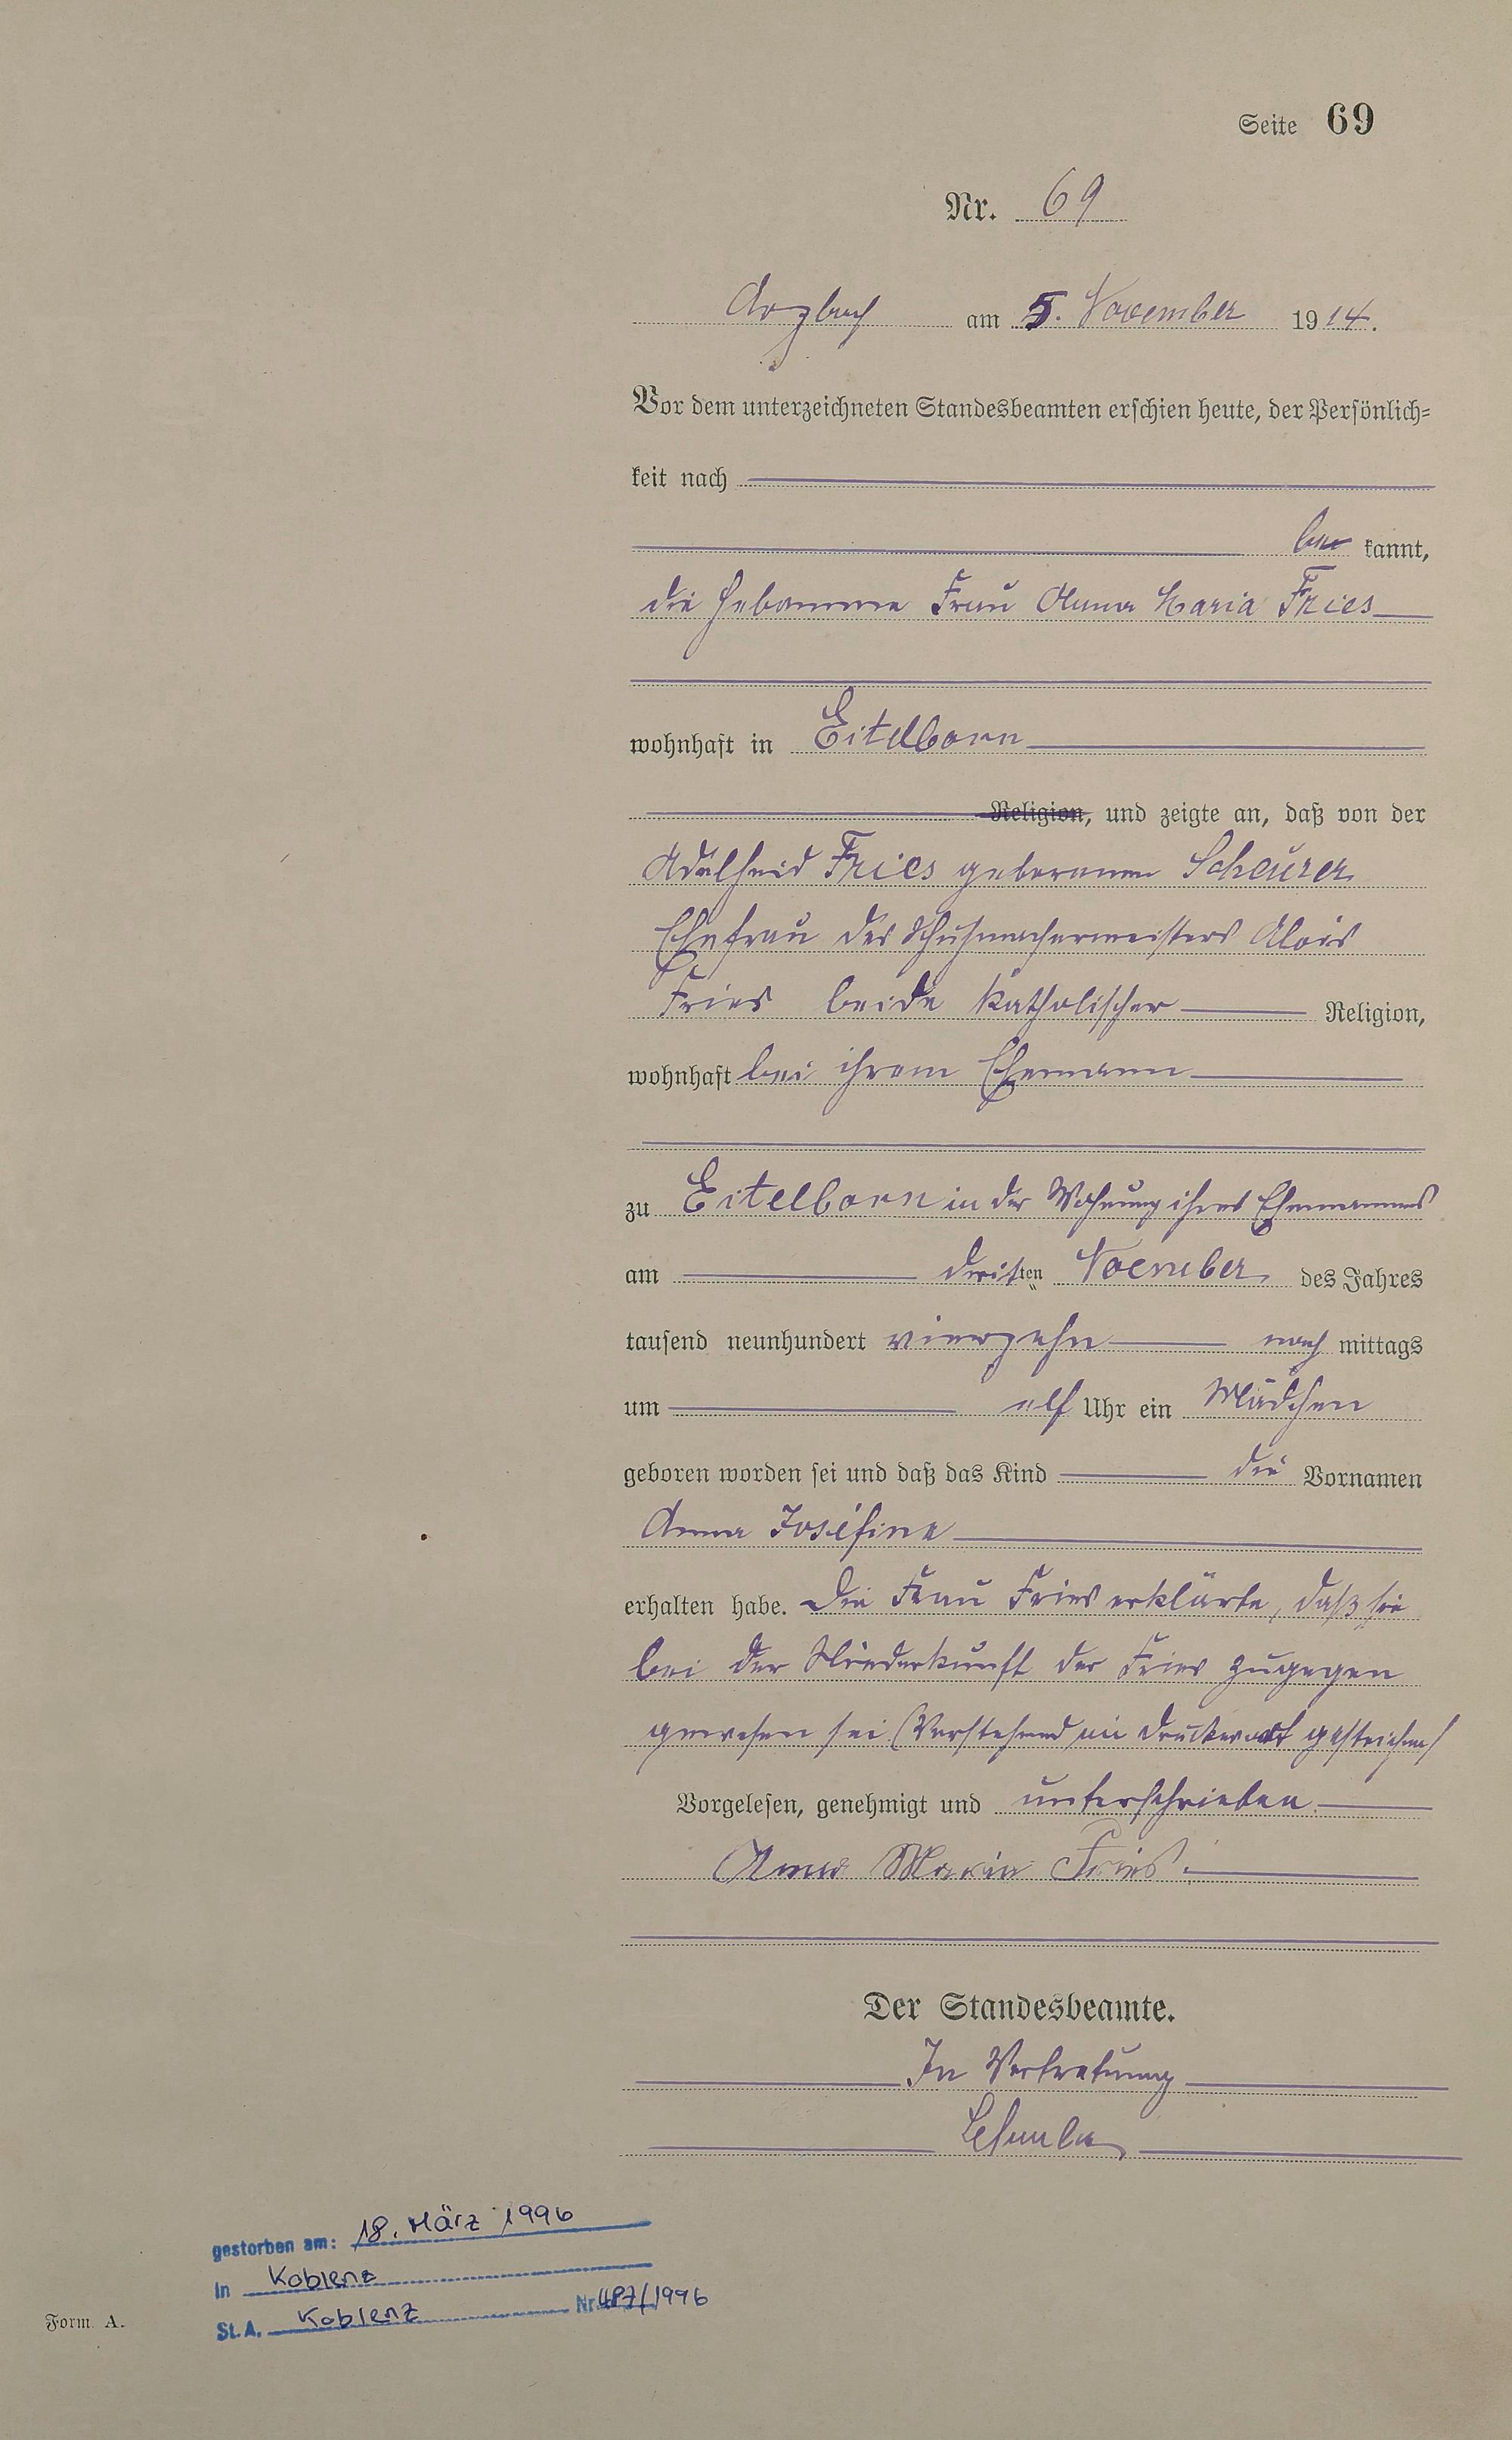 Seite 69
Nr. 69
Arzbach am 5. November 1914.
Vor dem unterzeichneten Standesbeamten erschien heute, der Persönlich=
keit nach
be kannt,
die Hebamme Frau Anna Maria Fries
wohnhaft in Eitelborn
Religion, und zeigte an, daß von der
Adelheid Fries geborenen Scheurer
Ehefrau des Schuhmachermeisters Alois
Fries beide katholischer Religion,
wohnhaft bei ihrem Ehemann
zu Eitelborn in der Wohnung ihres Ehemannes
am dritten November des Jahres
tausend neunhundert vierzehn nach mittags
um elf Uhr ein Mädchen
geboren worden sei und daß das Kind die Vornamen
Anna Josefine
erhalten habe. Die Frau Fries erklärte, daß sie
bei der Niederkunft der Fries zugegen
gewesen sei (Vorstehend ein Druckwort gestrichen)
Vorgelesen, genehmigt und unterschrieben.
Anna Maria Fries.
Der Standesbeamte.
In Vertretung
gestorben am: 18. März 1996
in Koblenz
St.A. Koblenz Nr 487/1996
Form. A.